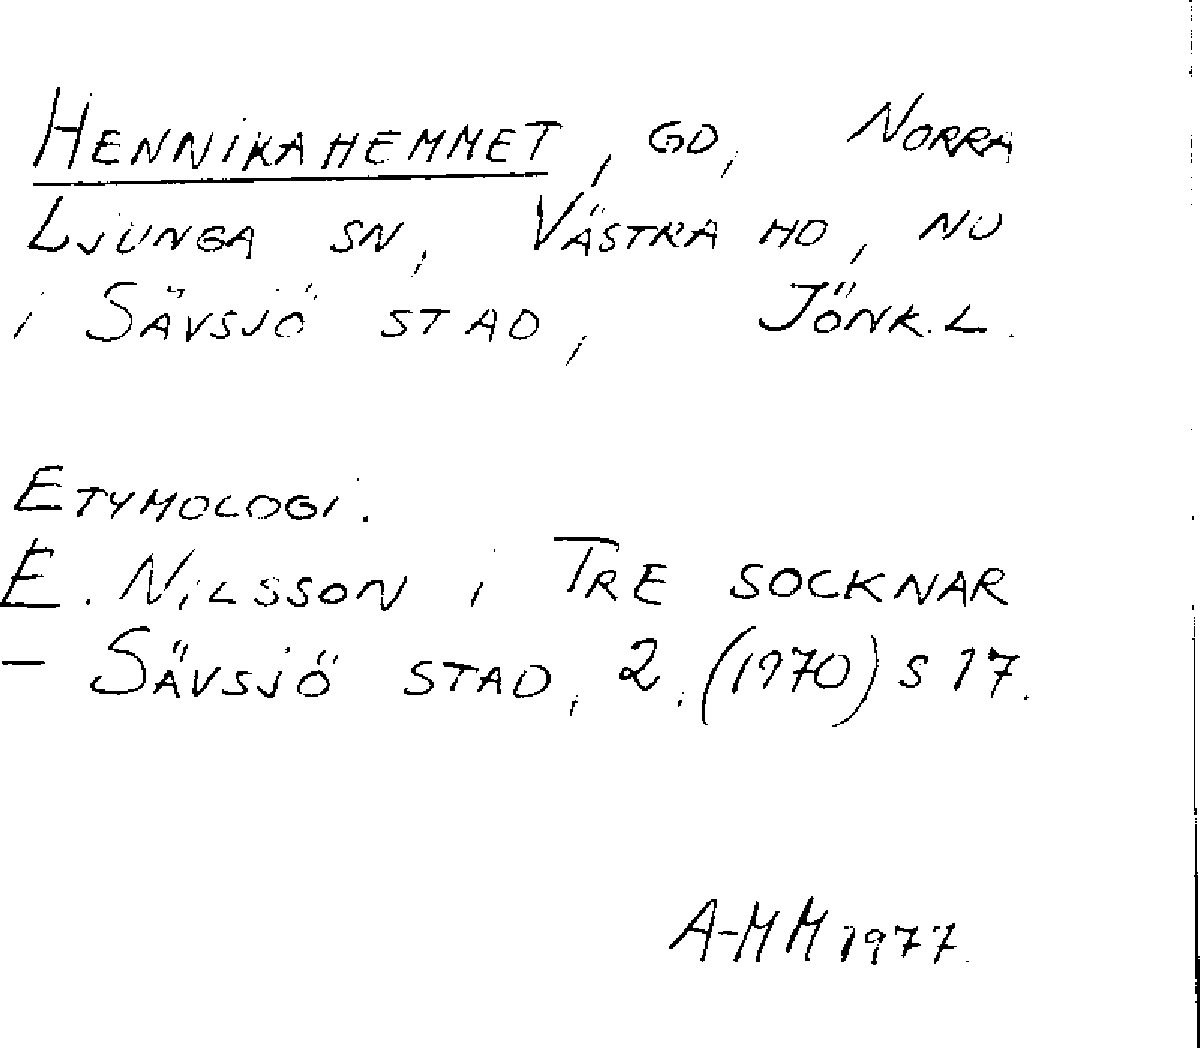 HENNIKAHEMMET, GD, NORRA
LJUNGA SN, VÄSTRA HD, NU
i SÄVSJÖ STAD, JÖNK.L.
ETYMOLOGI.
E. NILSSON i TRE SOCKNAR
– SÄVSJÖ STAD, 2. (1970) S 17.
A-MM 1977.